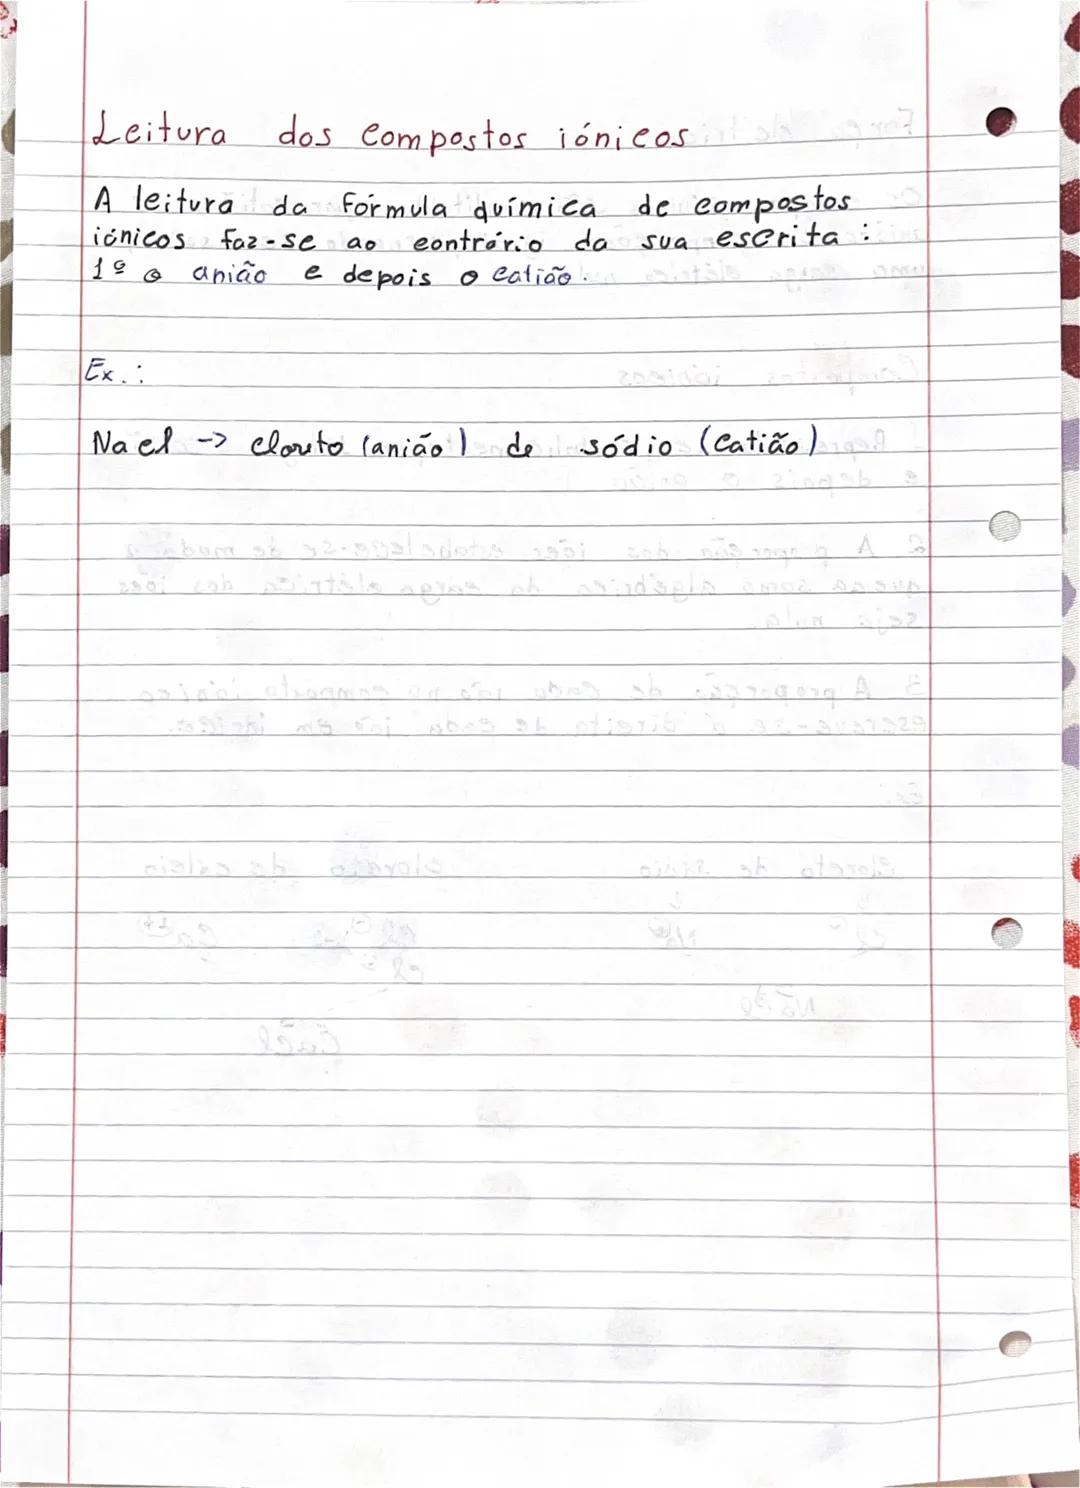 Leitura dos compostos iónicos
A leitura da fórmula química de compostos
iónicos faz-se ao contrário da sua escrita :
1º o anião e depois o catião.
Ex.:
Nacl -> cloreto (anião) de sódio (catião)